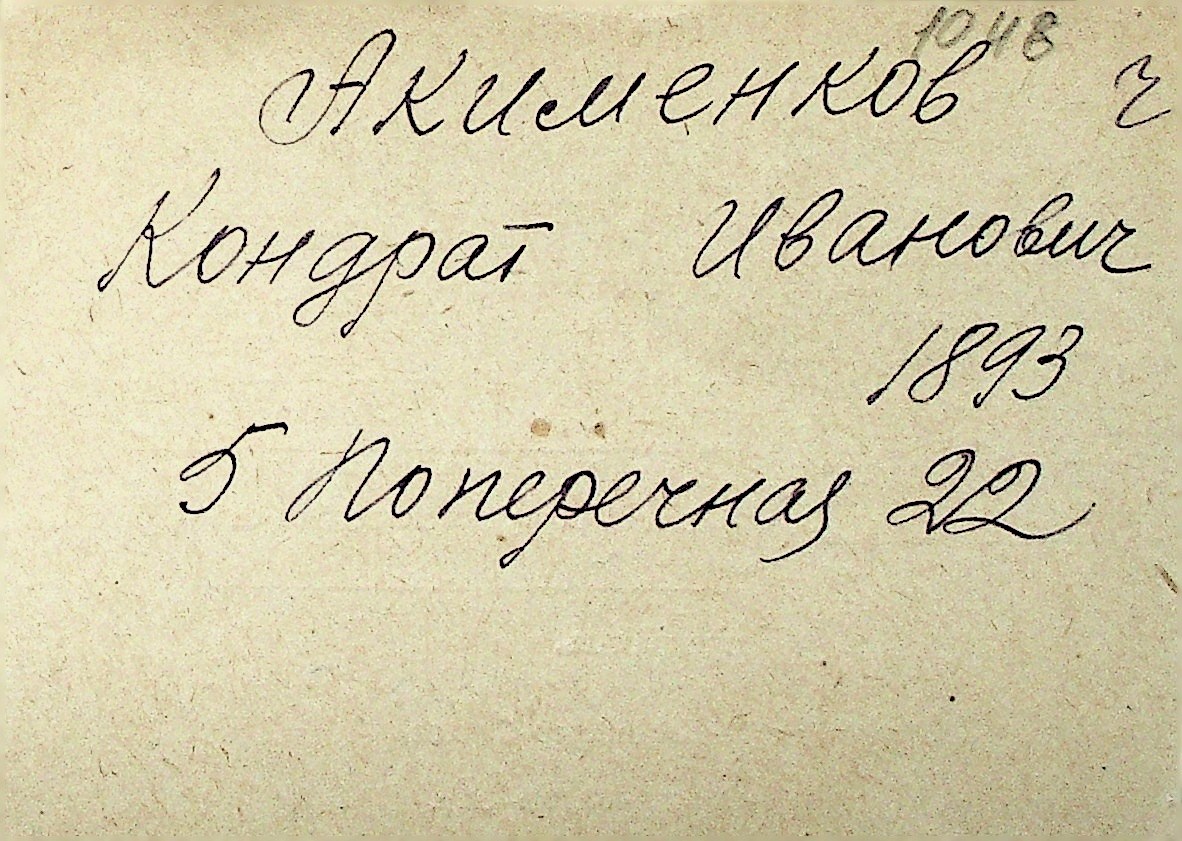 1048
Акименков г
Кондрат Иванович
1893
5 Поперечная 22